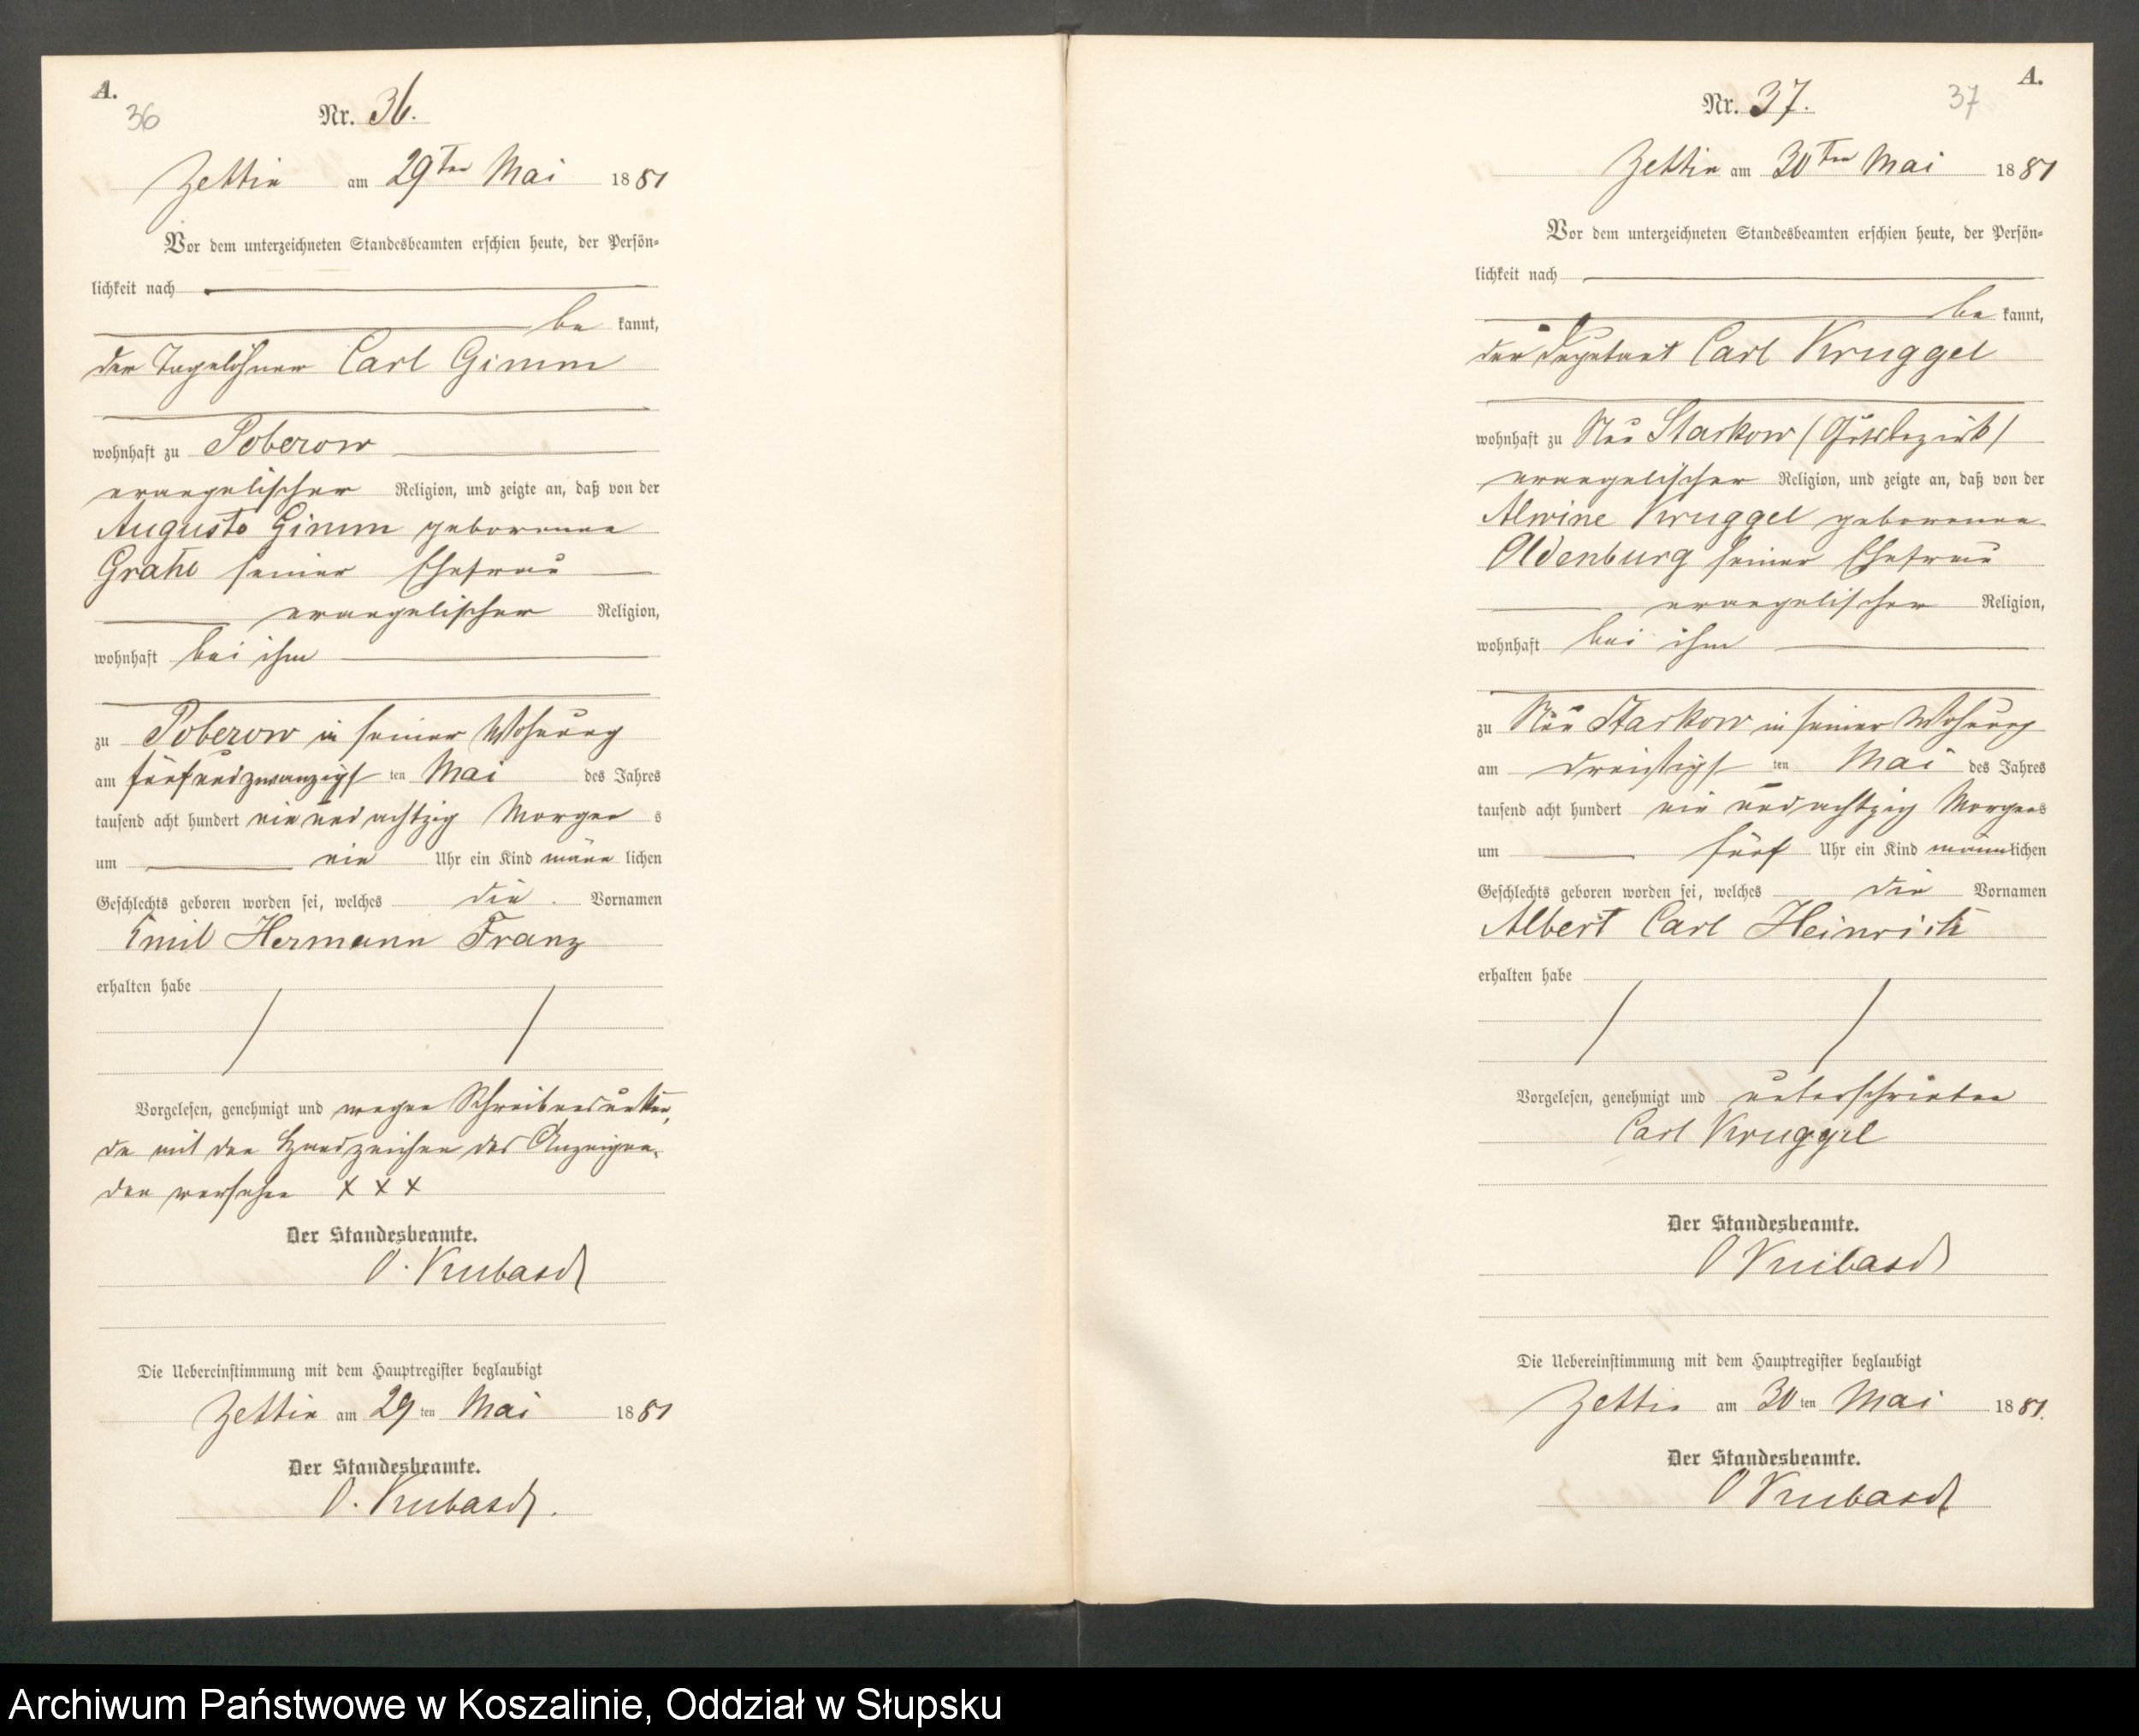 A.
36
Nr. 36.
Zettin am 29ten Mai 1881
Vor dem unterzeichneten Standesbeamten erschien heute, der Persön-
lichkeit nach
be kannt,
der Tagelöhner Carl Gimm
wohnhaft zu Poberow
evangelischer Religion, und zeigte an, daß von der
Auguste Gimm geborenen
seiner Ehefrau
evangelischer Religion,
wohnhaft bei ihm
zu Poberow in seiner Wohnung
am fünfundzwanzigsten Mai des Jahres
tausend acht hundert ein und achtzig Morgens
um ein Uhr ein Kind männlichen
Geschlechts geboren worden sei, welches die Vornamen
Emil Hermann Franz
erhalten habe
Vorgelesen, genehmigt und wegen Schreibensunkun-
de mit den Handzeichen des Anzeigen-
den versehen x x x
Der Standesbeamte.
O. Kubasch
Die Uebereinstimmung mit dem Hauptregister beglaubigt
Zettin am 29ten Mai 1881
Der Standesbeamte.
O. Kubasch.
A.
37
Nr. 37.
Zettin am 30ten Mai 1881
Vor dem unterzeichneten Standesbeamten erschien heute, der Persön-
lichkeit nach
be kannt,
der Carl Kruggel
wohnhaft zu Neu Starkow (Gutsbezirk)
evangelischer Religion, und zeigte an, daß von der
Alwine Kruggel geborenen
Oldenburg seiner Ehefrau
evangelischer Religion,
wohnhaft bei ihm
zu Neu Starkow in seiner Wohnung
am dreißigsten Mai des Jahres
tausend acht hundert ein und achtzig Morgens
um fünf Uhr ein Kind männlichen
Geschlechts geboren worden sei, welches die Vornamen
Albert Carl Heinrich
erhalten habe
Vorgelesen, genehmigt und unterschrieben
Carl Kruggel
Der Standesbeamte.
O Kubasch
Die Uebereinstimmung mit dem Hauptregister beglaubigt
Zettin am 30ten Mai 1881.
Der Standesbeamte.
O Kubasch
Archiwum Państwowe w Koszalinie, Oddział w Słupsku